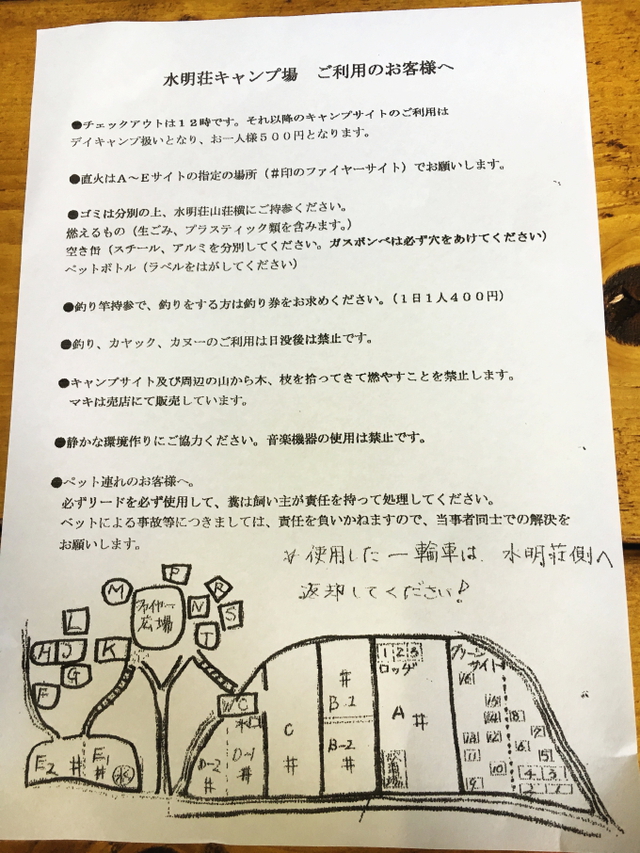 水明荘キャンプ場　ご利用のお客様へ
●チェックアウトは１２時です。それ以降のキャンプサイトのご利用は
デイキャンプ扱いとなり、お一人様５００円となります。
●直火はＡ～Ｅサイトの指定の場所（＃印のファイヤーサイト）でお願いします。
●ゴミは分別の上、水明荘山荘横にご持参ください。
燃えるもの（生ごみ、プラスティック類を含みます。）
空き缶（スチール、アルミを分別してください。ガスボンベは必ず穴をあけてください）
ペットボトル（ラベルをはがしてください）
●釣り竿持参で、釣りをする方は釣り券をお求めください。（１日１人４００円）
●釣り、カヤック、カヌーのご利用は日没後は禁止です。
●キャンプサイト及び周辺の山から木、枝を拾ってきて燃やすことを禁止します。
マキは売店にて販売しています。
●静かな環境作りにご協力ください。音楽機器の使用は禁止です。
●ペット連れのお客様へ。
必ずリードを必ず使用して、糞は飼い主が責任を持って処理してください。
ペットによる事故等につきましては、責任を負いかねますので、当事者同士での解決を
お願いします。
使用した一輪車は、水明荘側へ
返却してください!
P
M
ファイヤー
広場
N
R
S
T
L
H
J
K
G
F
E2
#
E1
#
水
WC
D-2
#
D-1
#
C
#
#
B-1
B-2
#
1 2 3
ロッヂ
A #
グリーン
サイト
16
15
14
13
12
11
10
9
8
7
6
5
4 3
2 1